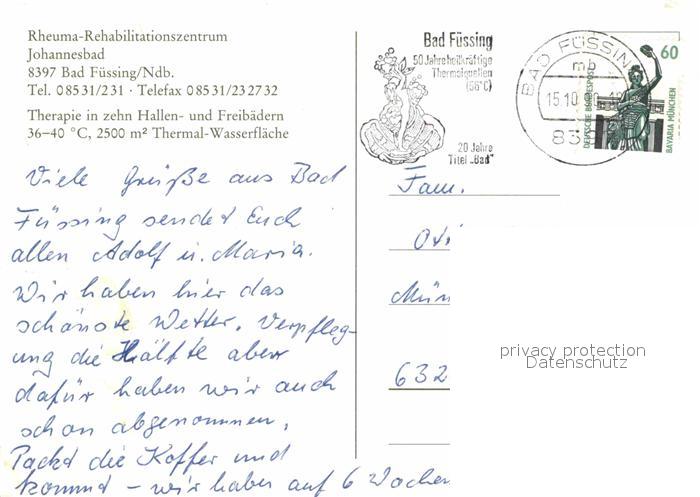 Rheuma-Rehabilitationszentrum
Johannesbad
8397 Bad Füssing/Ndb.
Tel. 08531/231 · Telefax 08531/232732
Therapie in zehn Hallen- und Freibädern
36–40 °C, 2500 m² Thermal-Wasserfläche
Viele Grüße aus Bad
Füssing sendet Euch
allen Adolf u. Maria.
Wir haben hier das
schönste Wetter. Verpfleg-
ung die Hälfte aber
dafür haben wir auch
schon abgenommen.
Packt die Koffer und
kommt – wir haben auf 6 Wochen
Bad Füssing
50 Jahre heilkräftige
Thermalquellen
(56°C)
20 Jahre
Titel „Bad"
BAD FÜSSING
mb
15.10
60
DEUTSCHE BUNDESPOST
BAVARIA MÜNCHEN
Fam.
Mün
632
privacy protection
Datenschutz